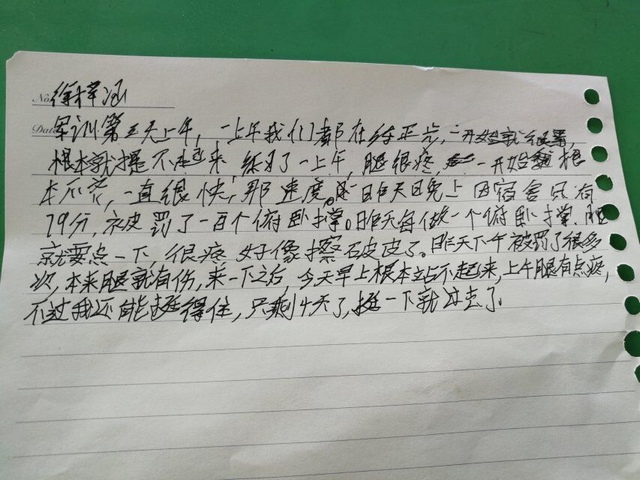 徐梓涵
军训第三天上午,一上午我们都在练正步,一开始就很累,
根本就提不起来 练了一上午,腿很疼, 一开始 根
本不齐,一直很快,那速度。 昨天晚上因宿舍只有
79分,被罚了一百个俯卧撑。昨天每做一个俯卧撑,腿
就要点一下,很疼 好像擦破皮了。昨天下午被罚了很多
次,本来腿就有伤,来一下之后,今天早上根本站不起来,上午腿有点疼,
不过我还能挺得住,只剩4天了,挺一下就过去了.